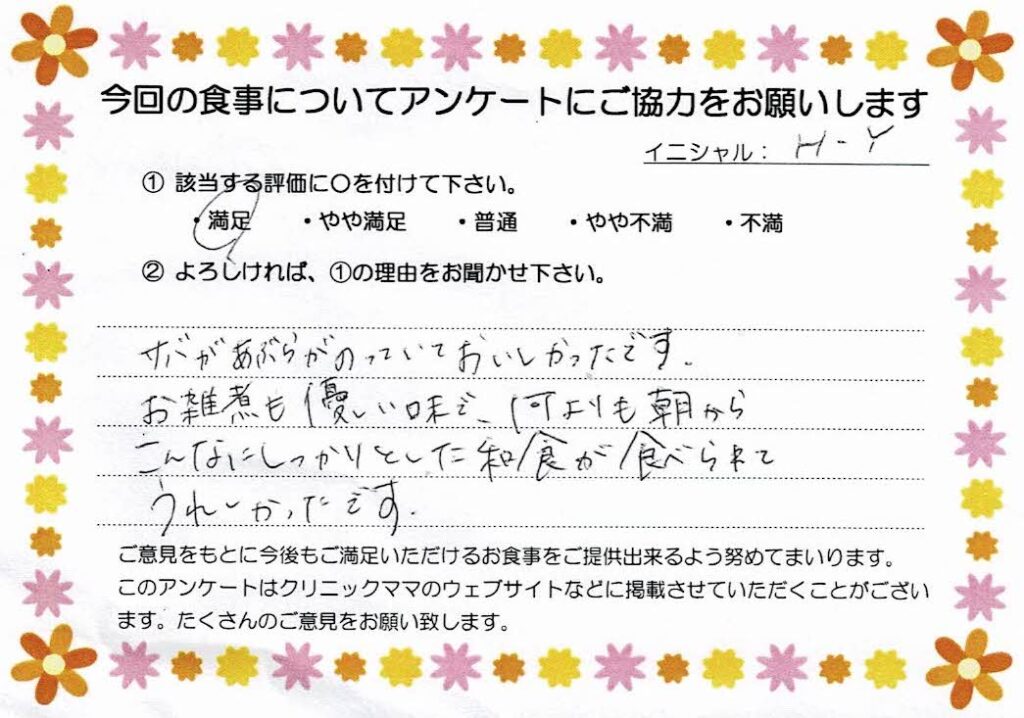 今回の食事についてアンケートにご協力をお願いします
イニシャル： H-Y
① 該当する評価に〇を付けて下さい。
・満足 ・やや満足 ・普通 ・やや不満 ・不満
② よろしければ、①の理由をお聞かせ下さい。
サバがあぶらがのっていておいしかったです。
お雑煮も優しい味で、何よりも朝から
こんなにしっかりとした和食が食べられて
うれしかったです。
ご意見をもとに今後もご満足いただけるお食事をご提供出来るよう努めてまいります。
このアンケートはクリニックママのウェブサイトなどに掲載させていただくことがござい
ます。たくさんのご意見をお願い致します。